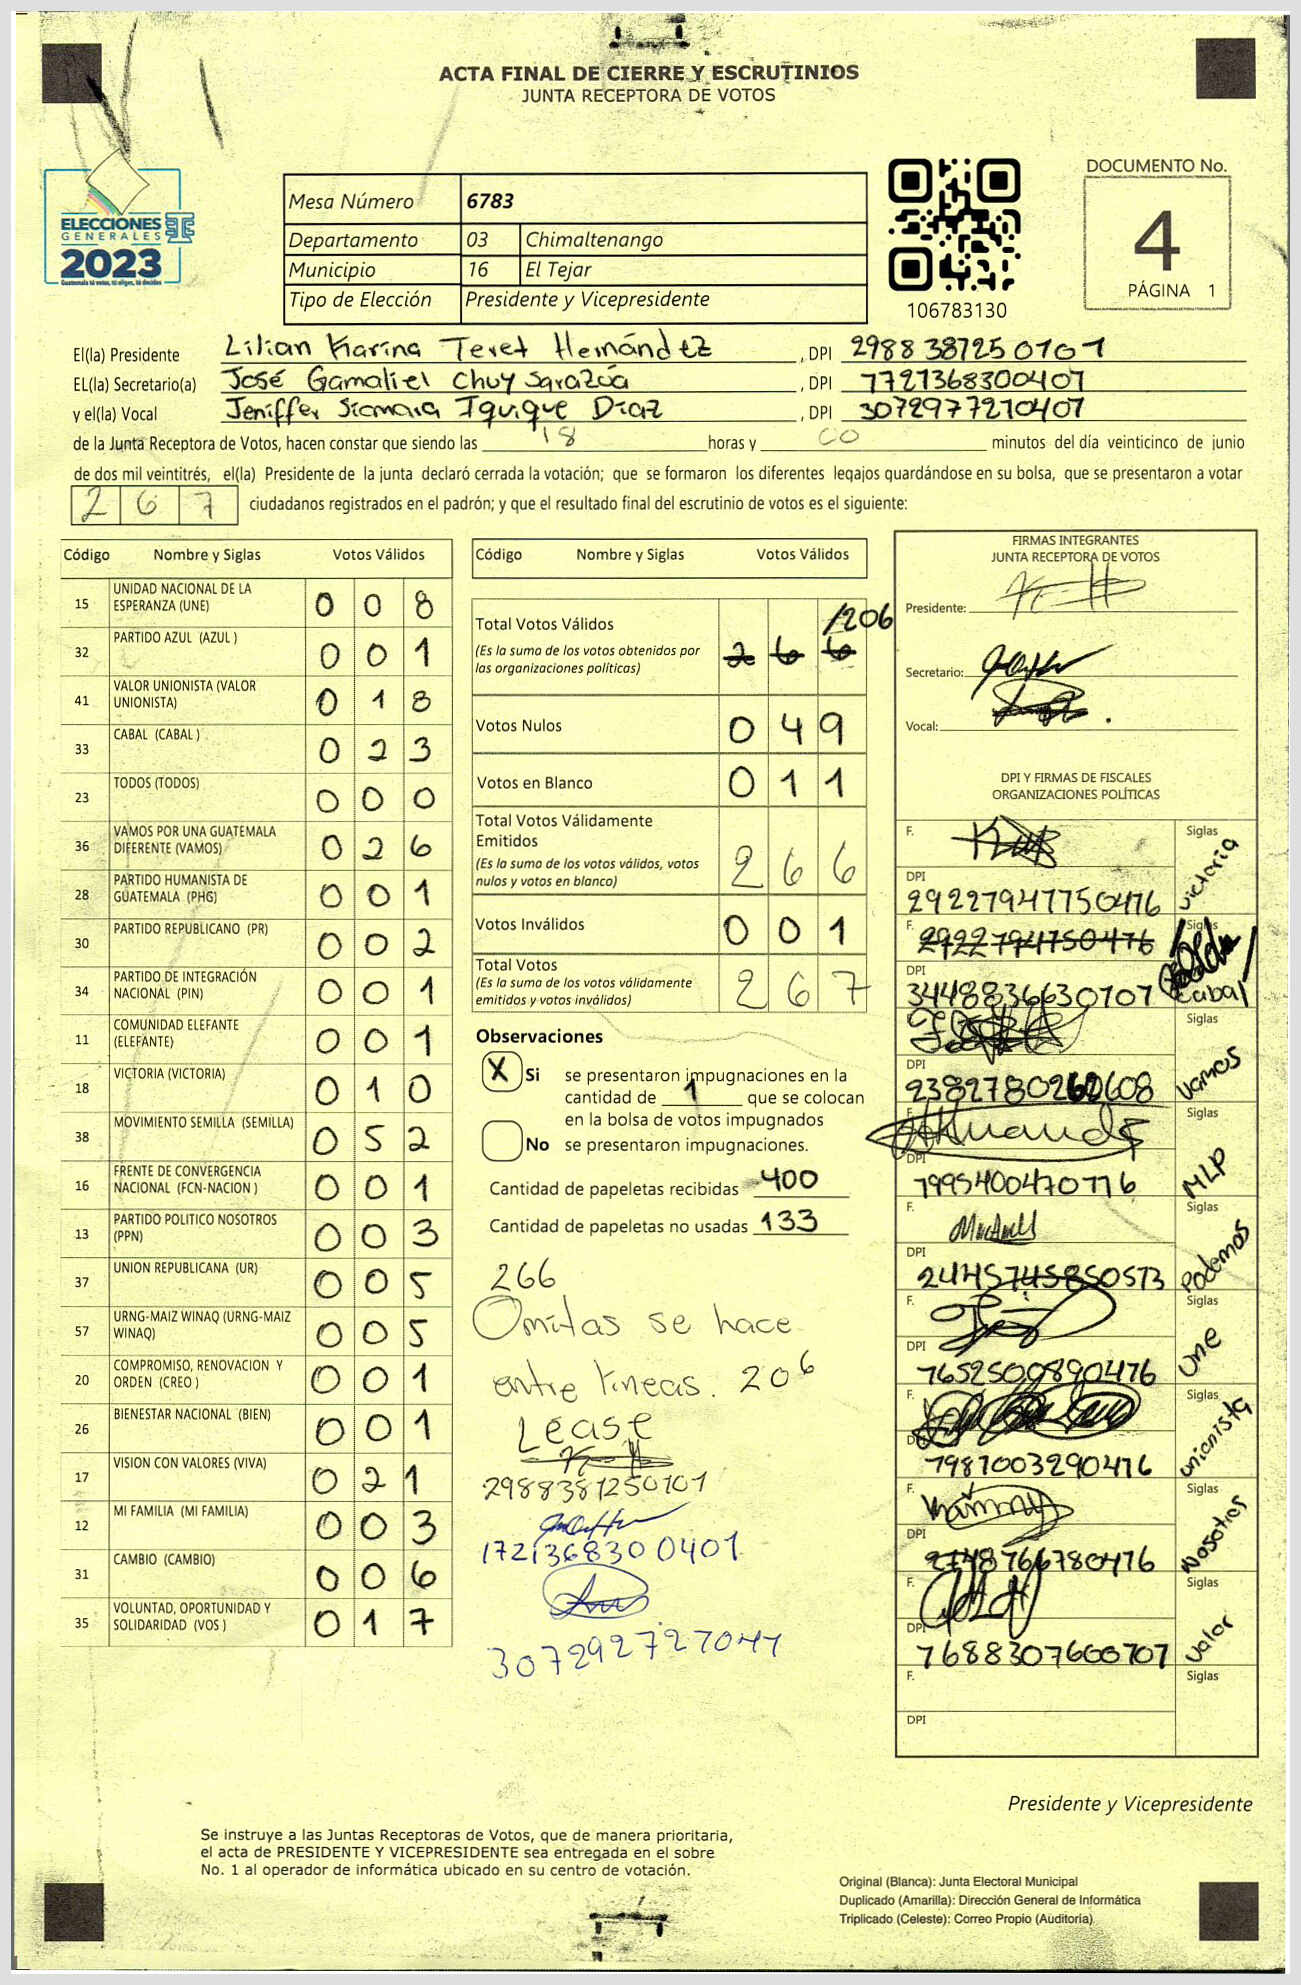 ACTA FINAL DE CIERRE Y ESCRUTINIOS
JUNTA RECEPTORA DE VOTOS
ELECCIONES
GENERALES
2023
Guatemala tú votas, tú eliges, tú decides
Mesa Número 6783
Departamento 03 Chimaltenango
Municipio 16 El Tejar
Tipo de Elección Presidente y Vicepresidente
106783130
DOCUMENTO No.
4
PÁGINA 1
El(la) Presidente Lilian Karina Teret Hernández, DPI 2988387250101
EL(la) Secretario(a) José Gamaliel Chuy Sarazúa, DPI 1721368300407
y el(la) Vocal Jeniffer Siomara Iquique Díaz, DPI 3072977270407
de la Junta Receptora de Votos, hacen constar que siendo las 18 horas y 00 minutos del día veinticinco de junio
de dos mil veintitrés, el(la) Presidente de la junta declaró cerrada la votación; que se formaron los diferentes legajos guardándose en su bolsa, que se presentaron a votar
267 ciudadanos registrados en el padrón; y que el resultado final del escrutinio de votos es el siguiente:
Código Nombre y Siglas Votos Válidos
15 UNIDAD NACIONAL DE LA ESPERANZA (UNE) 008
32 PARTIDO AZUL (AZUL ) 001
41 VALOR UNIONISTA (VALOR UNIONISTA) 018
33 CABAL (CABAL ) 023
23 TODOS (TODOS) 000
36 VAMOS POR UNA GUATEMALA DIFERENTE (VAMOS) 026
28 PARTIDO HUMANISTA DE GUATEMALA (PHG) 001
30 PARTIDO REPUBLICANO (PR) 002
34 PARTIDO DE INTEGRACIÓN NACIONAL (PIN) 001
11 COMUNIDAD ELEFANTE (ELEFANTE) 001
18 VICTORIA (VICTORIA) 010
38 MOVIMIENTO SEMILLA (SEMILLA) 052
16 FRENTE DE CONVERGENCIA NACIONAL (FCN-NACION ) 001
13 PARTIDO POLITICO NOSOTROS (PPN) 003
37 UNION REPUBLICANA (UR) 005
57 URNG-MAIZ WINAQ (URNG-MAIZ WINAQ) 005
20 COMPROMISO, RENOVACION Y ORDEN (CREO ) 001
26 BIENESTAR NACIONAL (BIEN) 001
17 VISION CON VALORES (VIVA) 021
12 MI FAMILIA (MI FAMILIA) 003
31 CAMBIO (CAMBIO) 006
35 VOLUNTAD, OPORTUNIDAD Y SOLIDARIDAD (VOS ) 017
Código Nombre y Siglas Votos Válidos
Total Votos Válidos /206
(Es la suma de los votos obtenidos por las organizaciones políticas) 266
Votos Nulos 049
Votos en Blanco 011
Total Votos Válidamente Emitidos
(Es la suma de los votos válidos, votos nulos y votos en blanco) 266
Votos Inválidos 001
Total Votos
(Es la suma de los votos válidamente emitidos y votos inválidos) 267
Observaciones
X Si se presentaron impugnaciones en la
cantidad de 1 que se colocan
en la bolsa de votos impugnados
No se presentaron impugnaciones.
Cantidad de papeletas recibidas 400
Cantidad de papeletas no usadas 133
266
Omitas se hace
entre lineas. 206
Lease
2988387250101
1721368300401
307292727041
FIRMAS INTEGRANTES
JUNTA RECEPTORA DE VOTOS
Presidente:
Secretario:
Vocal:
DPI Y FIRMAS DE FISCALES
ORGANIZACIONES POLÍTICAS
F. Siglas victoria
DPI 29227947750476
F. 2922794750476 Siglas Cabal
DPI 3448836630707
F. Siglas vamos
DPI
F. Siglas MLP
DPI 7995400470776
F. Siglas Podemos
DPI 2445745850573
F. Siglas Une
DPI 7652500890476
F. Siglas unionista
DPI 7987003290476
F. Siglas Nosotros
DPI 2748766780476
F. Siglas Valor
DPI 7688307600707
F. Siglas
DPI
Presidente y Vicepresidente
Se instruye a las Juntas Receptoras de Votos, que de manera prioritaria,
el acta de PRESIDENTE Y VICEPRESIDENTE sea entregada en el sobre
No. 1 al operador de informática ubicado en su centro de votación.
Original (Blanca): Junta Electoral Municipal
Duplicado (Amarilla): Dirección General de Informática
Triplicado (Celeste): Correo Propio (Auditoría)